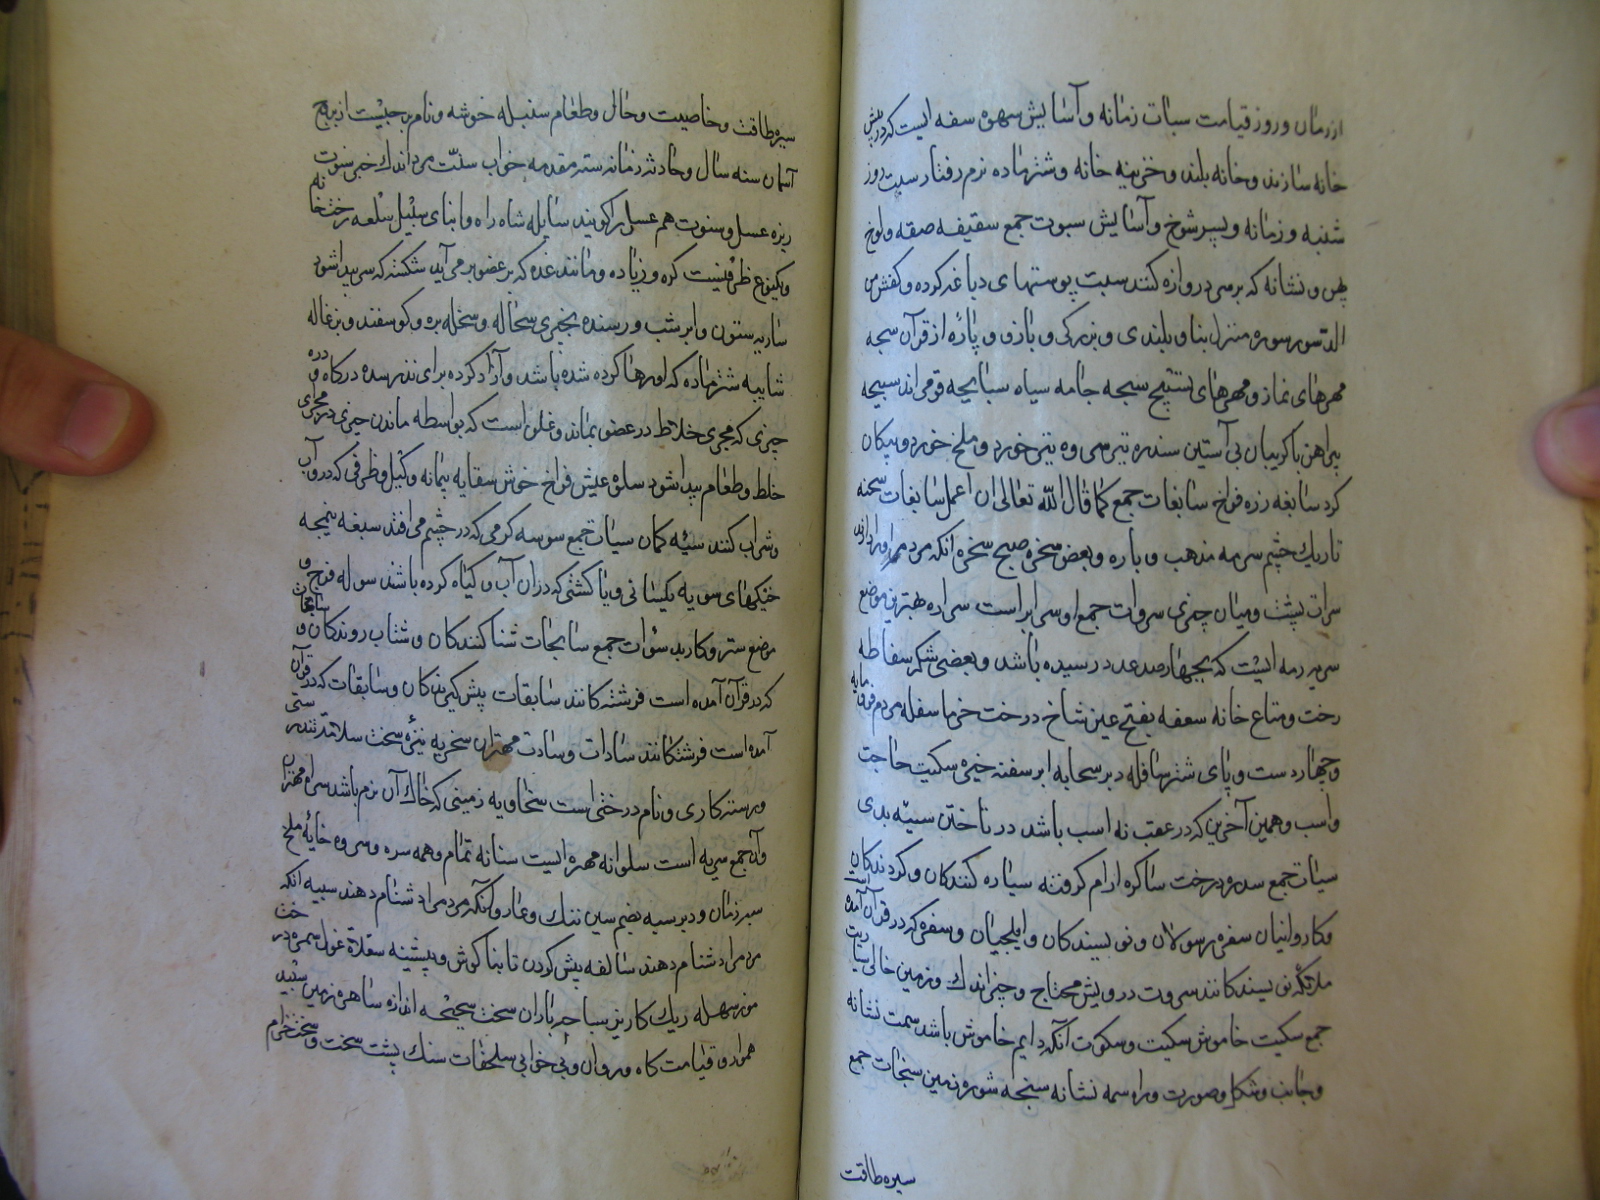 از زمان و روز قیامت سبات زمانه و آسایش سهوه سفه ایست که در پیش
خانه سازند و خانه بلند و خزینه خانه و شتر ماده نرم رفتار سبت روز
شنبه و زمانه و پسر شوخ و آسایش سبوت جمع سقیفه صفه و لوح
پهن و نشانه که بر سر دروازه کنند سبت پوستهای دباغه کرده و کفش من
سور سوره منزل بنا و بلندی و بزرکی و باذو و پاره از قرآن سجه
مهرهای نماز و مهرهای تسبیح سبجه جامه سیاه سبایجه قومی اند سبیجه
پیراهن با کریبان بی آستین سندره تیر سروه تیر خورد و ملخ خورد و پیکان
کرد سابغه زره فراخ سابغات جمع کما قال اللّه تعالی ان اعمل سابغات سخنه
تاریک چشم سرمه مذهب و باره و بعض سخره صبح سخره آنکه مردم او را
سرات پشت و میان چیزی سروات جمع او سرایر است سراده بهترین موضع
سربه رمه ایست که بچهار صد عدد رسیده باشد و بعضی شکر سفاطه
رخت و متاع خانه سعفه بفتح عین شاخ درخت خرما سفله مردم فرومایه
و چهار دست و پای شتر سافله دبر سحابه ابر سفنه خیره سکیت حاجت
و اسب و همین آخرین که در عقب نه اسب باشد در تاختن سیّه بدی
سیات جمع سدره درخت ساکره ارام کرفته سیاره کنندکان و کردندکان
و کاروانیان سفره رسولان و نویسندکان و ایلچیان و سفره که در قرآن آمده است
ملائکه نویسندکانند سروت درویش محتاج و چیز اندك و زمین خالی
جمع سکیت خاموش سکیت و سکوت آنکه دایم خاموش باشد سمت نشانه
و جانب و شکل و صورت و راه سمه نشانه سبخه شوره زمین سبخات جمع
سیره طاقت
سیره طاقت و خاصیت و حال و طعام سنبله خوشه و نام برجیست از بروج
آسمان سنه سال و حادثه زمانه ستر مقدمه خواب سنّت مرد اندك خیر سنوت
زیره عسل و سنوت هم عسل را کویند سابله شاه راه و ابنای سبیل سلعه رخت خانه
و یکنوع ظرفیست کره و زیاده و مانند غده که بر عضو بر می آید شکسته که سر پیدا شود
ساریه ستون و ابر شب و رسنده بچیزی سخاله و سخله بره و کوسفند و بزغاله
سایبه شتر ماده که او رها کرده شده باشد و آزاد کرده برای نذر سده درکاه و دره
چیزی که مجری خلاط در عضو بماند و غلق است که بواسطه ماندن چیزی در مجرای
خلط و طعام پیدا شود سلوه عیش فراخ خوش سقایه پیمانه و کیل و ظرفی که در و آب
و شراب کنند سیه کمان سیات جمع سوسه کرمی که در چشم می افتد سبغه
خیکهای سویه یکسانی و یا کشتی که دران آب و کیاه کرده باشند سوله فرج و
موضع ستر و کار بد سوات جمع سابحات شنا کنندکان و شتاب روندکان و سابحات
که در قرآن آمده است فرشتکانند سابقات پیش کیرندکان و سابقات که در قرآن
آمده است فرشتکانند سادات و سادت مهتران سخریه سخت سلامة تندرستی
و رستکاری و نام درختی است سخاویه زمینی که خاك آن نرم باشد سراه مهتران
و آن جمع سریه است سلوانه مهره ایست سنانه تمام و همه سره و سروه خایه ملخ
سبر زمان و دبر سبه بضم سین ننك و عار و آنکه مردم را دشنام دهند سبیه آنکه
مردم را دشنام دهند سالفه پیش کردن تا بناکوش و پیشینه سعلاة غول سمره درخت
موز سهله ریك کاریز سباحه باران سخت سجیحه اندازه ساهره زمین سپید
هموار و قیامت کاه و روان و بی خوابی سلحفات سنك پشت سخت و سخت خرام